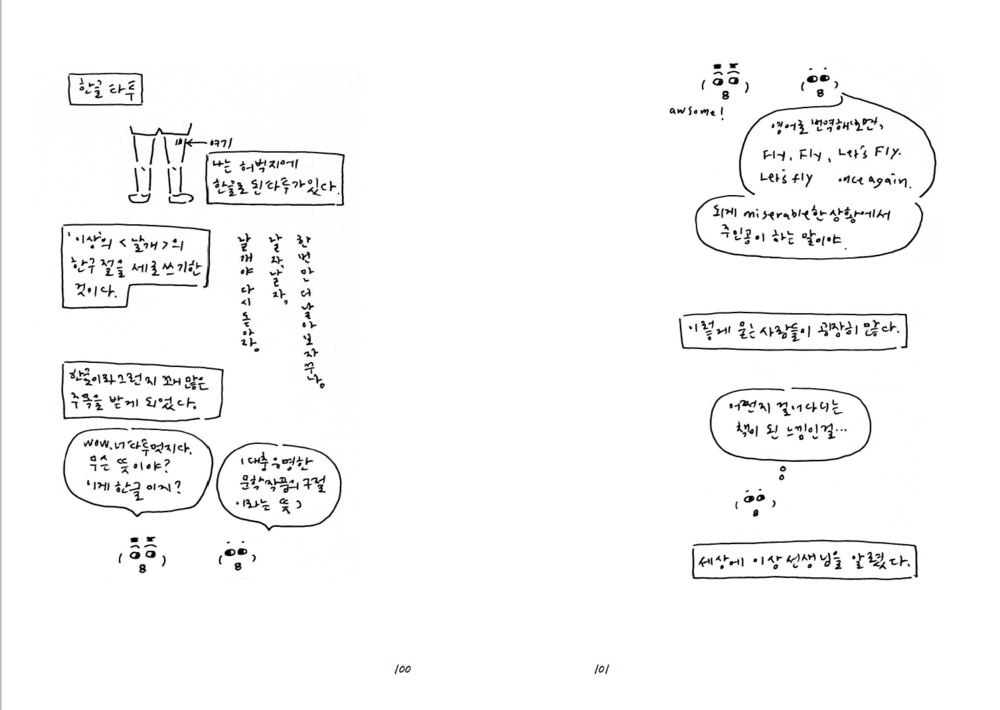 한글 타투
여기
나는 허벅지에
한글로 된 타투가 있다.
'이상'의 <날개>의
한 구절을 세로쓰기한
것이다.
날개야 다시 돋아라.
날자, 날자,
한번만 더 날아보자꾸나.
한글이라 그런지 꽤 많은
주목을 받게 되었다.
wow. 너 타투 멋지다.
무슨 뜻이야?
이게 한글이지?
(대충 유명한
문학작품의 구절
이라는 뜻)
100
awsome!
영어로 번역해보면,
Fly, Fly, Let's Fly.
Let's fly once again.
되게 miserable한 상황에서
주인공이 하는 말이야.
이렇게 묻는 사람들이 굉장히 많다.
어쩐지 걸어다니는
책이 된 느낌인걸...
세상에 이상 선생님을 알렸다.
101